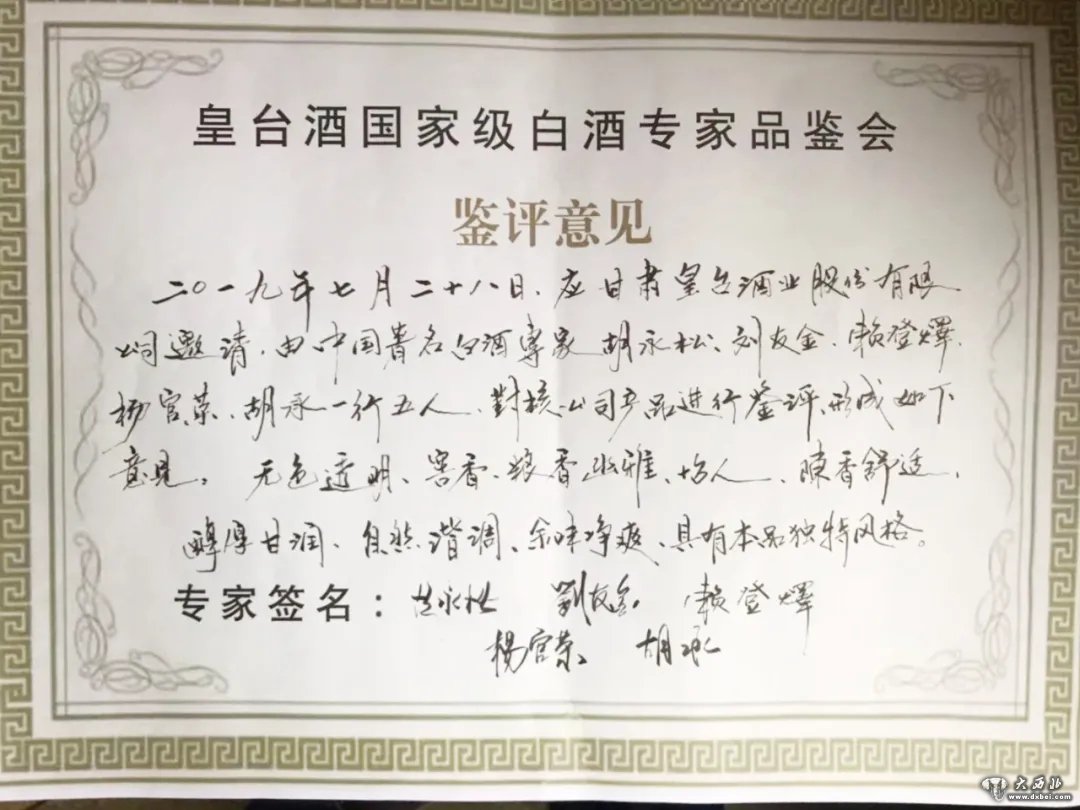 皇台酒国家级白酒专家品鉴会
鉴评意见
二〇一九年七月二十八日、应甘肃皇台酒业股份有限
公司邀请,由中国著名白酒專家胡永松、刘友金、賴登燡、
杨官荣、胡承一行五人、對该公司产品进行鉴评、形成如下
意見:无色透明、窖香、粮香幽雅、怡人、陳香舒适、
醇厚甘润、自然谐调、余味净爽、具有本品独特风格。
专家签名:胡永松 劉友金 賴登燡
楊官荣 胡承
大西北
www.dxbei.com